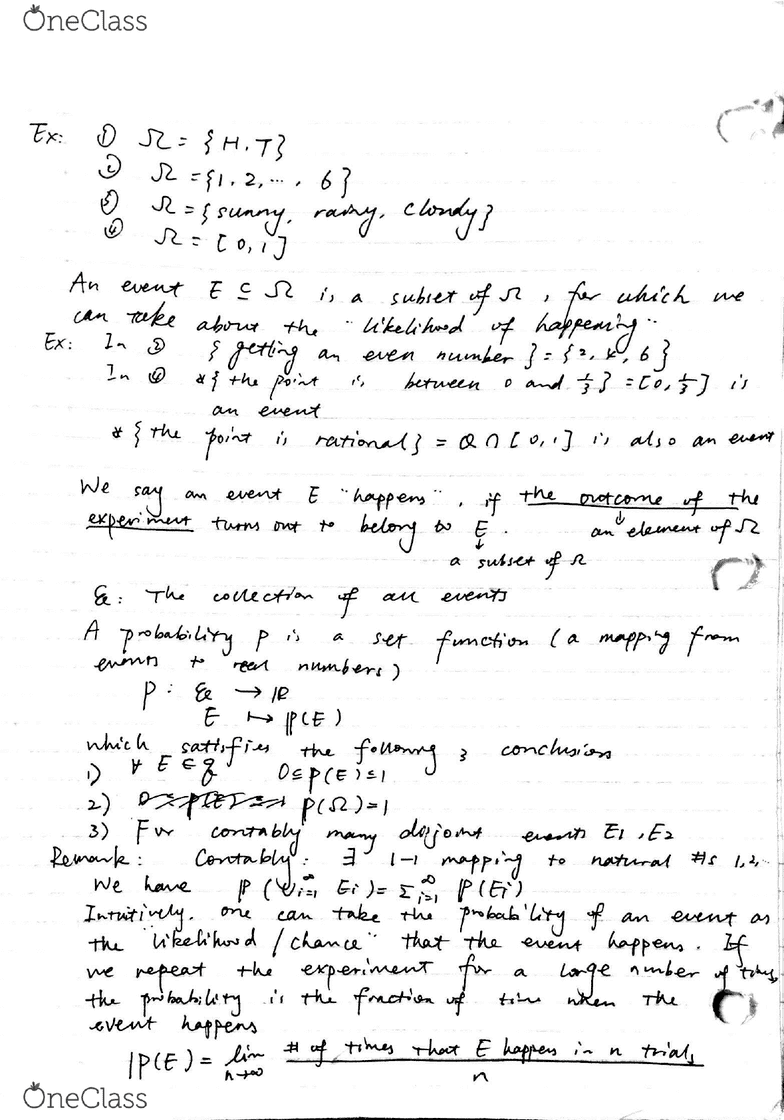 OneClass
Ex: ① Ω = {H, T}
② Ω = {1, 2, ..., 6}
③ Ω = {sunny, rainy, cloudy}
④ Ω = [0, 1]
An event E ⊆ Ω is a subset of Ω, for which we
can take about the "likelihood of happening"
Ex: In ② {getting an even number} = {2, 4, 6}
In ④ * {the point is between 0 and 1/3} = [0, 1/3] is
an event
* {the point is rational} = Q ∩ [0, 1] is also an event
We say an event E "happens", if the outcome of the
experiment turns out to belong to E. an element of Ω
a subset of Ω
The collection of all events
A probability P is a set function (a mapping from
events to real numbers)
P : → ℝ
E ↦ ℙ(E)
which satisfies the following 3 conclusions
1) ∀ E ∈ 0 ≤ P(E) ≤ 1
2) P(Ω) = 1
3) For contably many disjoint events E1, E2
Remark: Contably: ∃ 1-1 mapping to natural #s 1, 2, ..
We have ℙ(∪_{i=1}^∞ Ei) = Σ_{i=1}^∞ ℙ(Ei)
Intuitively, one can take the probability of an event as
the "likelihood / chance" that the event happens. If
we repeat the experiment for a large number of times,
the probability is the fraction of time when the
event happens
ℙ(E) = lim n→∞ # of times that E happen in n trials / n
OneClass